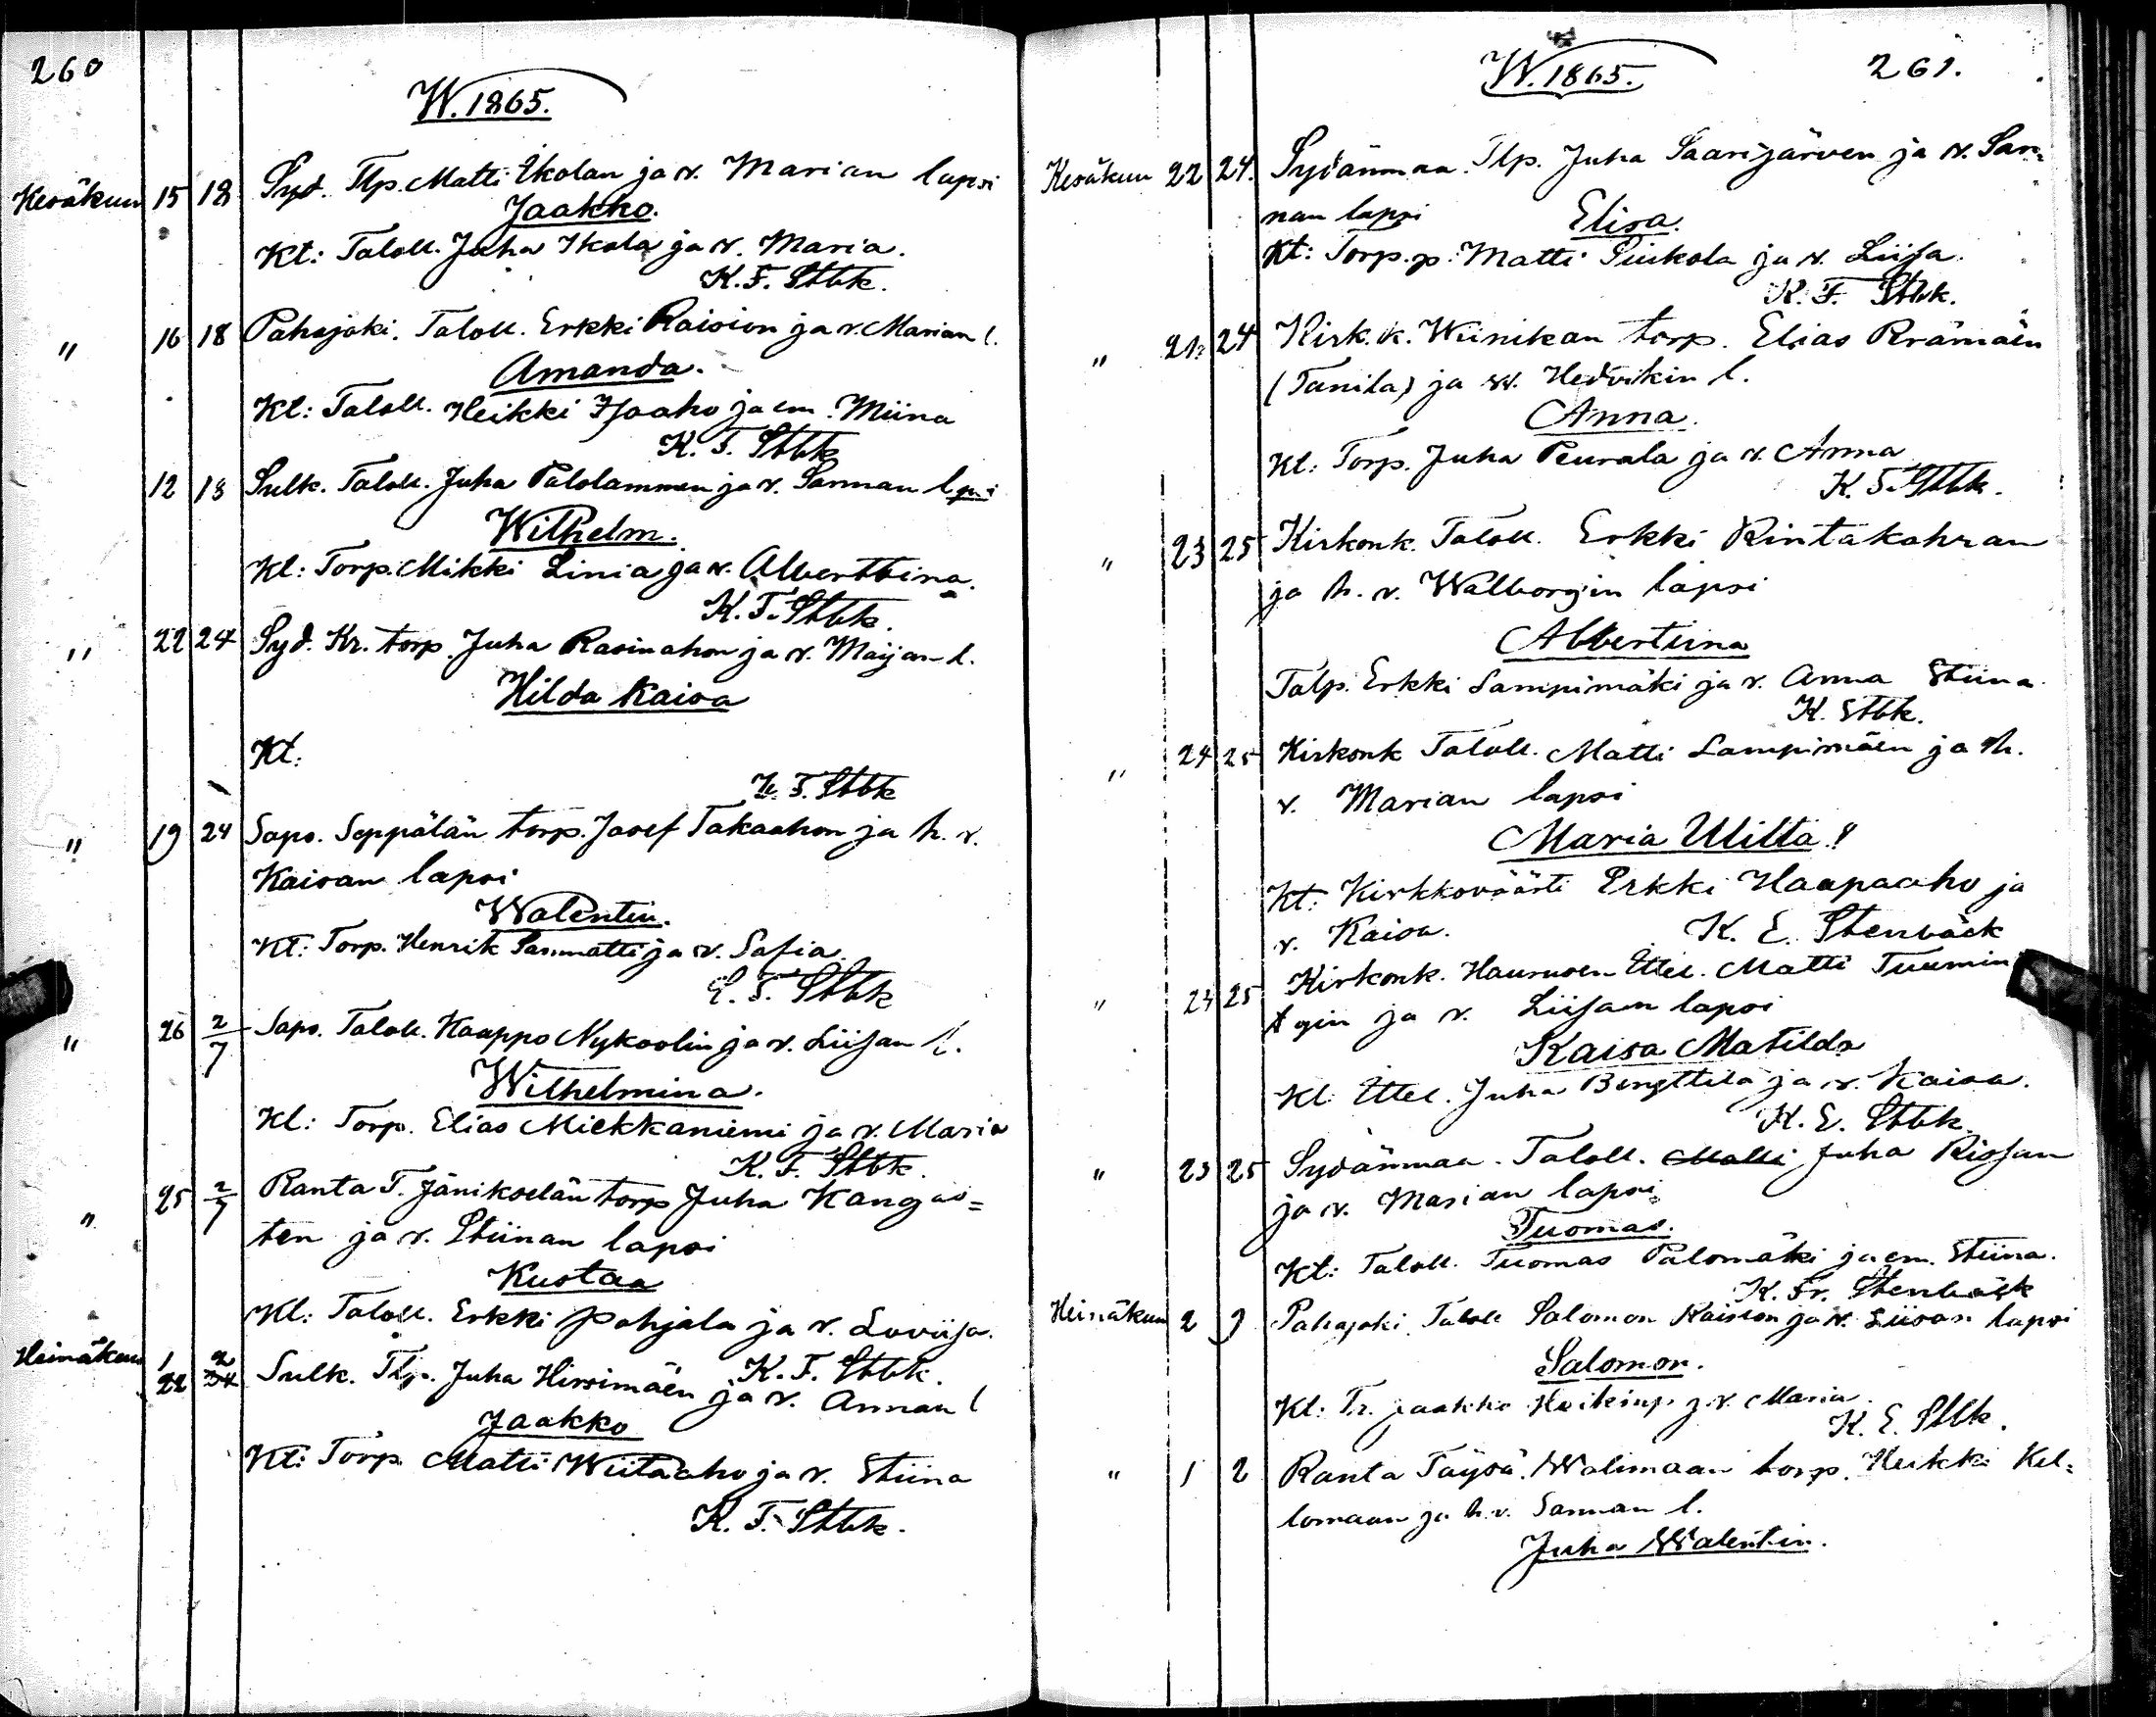 260
W. 1865.
Kesäkuun 15 18 Syd. Tlp. Matti Ikolan ja v. Marian lapsi
Jaakko.
Kt: Taloll. Juha Ikola ja v. Maria.
K. F. Stbk.
" 16 18 Pahajoki. Taloll. Erkki Raision ja v. Marian l.
Amanda.
Kt: Taloll. Heikki Isoaho ja em. Miina
K. F. Stbk
12 18 Sulk. Taloll. Juha Palolammen ja v. Sannan lpsi
Wilhelm.
Kt: Torp. Mikki Linia ja v. Alberttina.
K. F. Stbk.
" 22 24 Syd. Kr. torp. Juha Rasinahon ja v. Maijan l.
Hilda Kaisa
Kt.
K. F. Stbk
" 19 24 Sapo. Seppälän torp. Josef Takaahon ja h. v.
Kaisan lapsi
Walentin.
Kt: Torp. Henrik Sanmatti ja v. Sofia.
K. F. Stbk
" 26 2/7 Sapo. Taloll. Kaappo Nykoolin ja v. Liisan l.
Wilhelmina.
Kt: Torp. Elias Miekkaniemi ja v. Maria
K. F. Stbk.
" 25 2/7 Ranta T. Jänikoelän torp Juha Kangas=
ten ja v. Stiinan lapsi
Kustaa
Kt: Taloll. Erkki Pohjala ja v. Loviisa.
K. F. Stbk.
Heinäkuun 1 2 Sulk. Tlp. Juha Hirsimäen ja v. Annan l
22 24
Jaakko
Kt: Torp. Matti Wiitaaho ja v. Stiina
K. F. Stbk.
W. 1865.
261.
Kesäkuun 22 24. Sydänmaa. Tlp. Juha Saarijärven ja v. San=
nan lapsi
Elisa.
Kt: Torp. p. Matti Piukola ja v. Liisa.
K. F. Stbk.
" 21 24 Kirk. k. Wiinikan torp. Elias Rrämäen
(Tanila) ja w. Hedvikin l.
Anna.
Kt: Torp. Juha Peurala ja v. Anna
K. F. Stbk.
" 23 25 Kirkonk. Taloll. Erkki Rintakahran
ja h. v. Walborgin lapsi
Albertiina
Talp. Erkki Lampimäki ja v. Anna Stiina
K. Stbk.
" 24 25 Kirkonk Taloll. Matti Lampimäen ja h.
v. Marian lapsi
Maria Ulilta!
Kt: Kirkkoväärti Erkki Haapaaho ja
v. Kaisa.
K. E. Stenbäck
" 24 25 Kirkonk. Hausuoen Ittel. Matti Tuumin
gin ja v. Liisan lapsi
Kaisa Matilda
Kt Ittel. Juha Bengttila ja v. Kaisa.
K. E. Stbk.
" 23 25 Sydänmaa. Taloll. Matti Juha Riosan
ja v. Marian lapsi
Tuomas.
Kt: Taloll. Tuomas Palomäki ja em. Stiina.
K. Fr. Stenbäck
Heinäkuun 2 9 Pahajoki Taloll Salomon Raision ja v. Liisan lapsi
Salomon.
Kt: Tr. Jaakko Heikinp. j. v. Maria
K. E. Stbk.
" 1 2 Ranta Töysä. Walimaan torp. Heikki Kel=
lomaan ja h. v. Sannan l.
Juha Walentin.